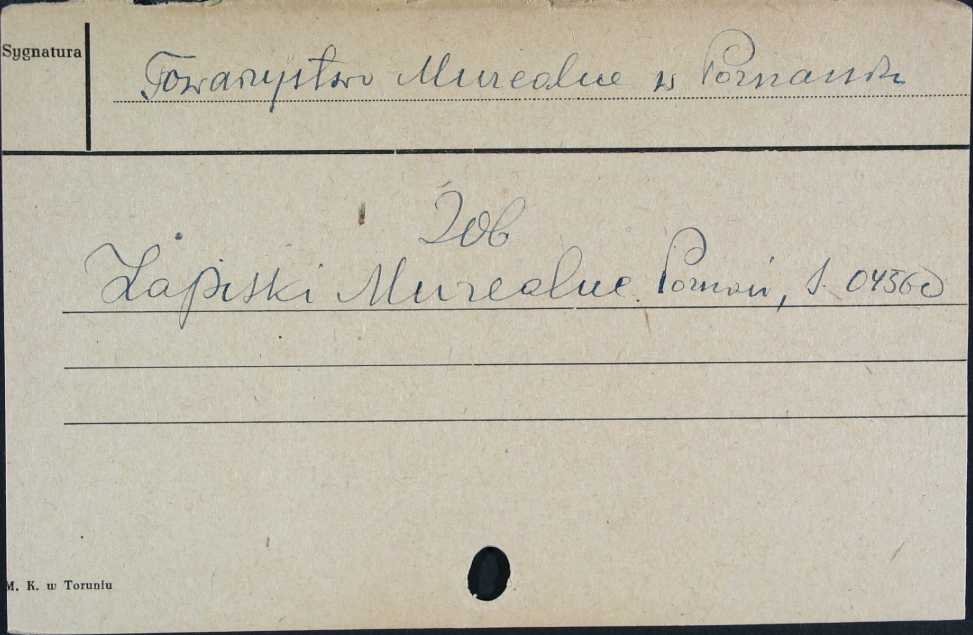 Sygnatura
Towarzystwo Muzealne w Poznaniu
Zob
Zapiski Muzealne. Poznań, S. 04360
M. K. w Toruniu